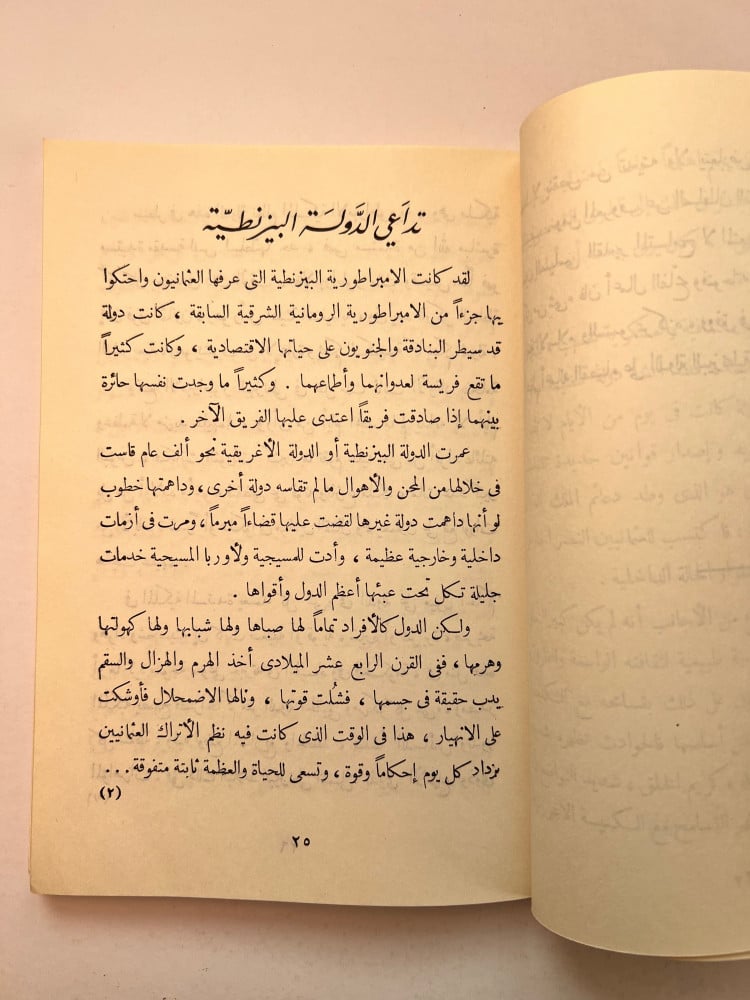 تداعي الدَّولَة البيزنطيّة
لقد كانت الامبراطورية البيزنطية التى عرفها العثمانيون واحتكوا
بها جزءاً من الامبراطورية الرومانية الشرقية السابقة ، كانت دولة
قد سيطر البنادقة والجنويون على حياتها الاقتصادية ، وكانت كثيراً
ما تقع فريسة لعدوانهما وأطماعهما . وكثيراً ما وجدت نفسها حائرة
بينهما إذا صادقت فريقاً اعتدى عليها الفريق الآخر .
عمرت الدولة البيزنطية أو الدولة الأغريقية نحو ألف عام قاست
فى خلالها من المحن والأهوال مالم تقاسه دولة أخرى ، وداهمتها خطوب
لو أنها داهمت دولة غيرها لقضت عليها قضاءاً مبرماً ، ومرت فى أزمات
داخلية وخارجية عظيمة ، وأدت للمسيحية ولأوربا المسيحية خدمات
جليلة تكل تحت عبئها أعظم الدول وأقواها .
ولكن الدول كالأفراد تماماً لها صباها ولها شبابها ولها كهولتها
وهرمها ، ففى القرن الرابع عشر الميلادى أخذ الهرم والهزال والسقم
يدب حقيقة فى جسمها ، فشُلت قوتها ، ونالها الاضمحلال فأوشكت
على الانهيار ، هذا فى الوقت الذى كانت فيه نظم الأتراك العثمانيين
تزداد كل يوم إحكاماً وقوة ، وتسعى للحياة والعظمة ثابتة متفوقة ...
(٢)
٢٥